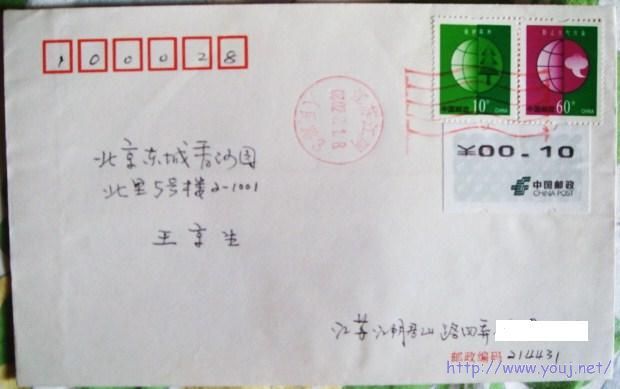 100028
中国邮政
10分
CHINA
中国邮政
60分
CHINA
¥00.10
中国邮政
CHINA POST
北京东城香河园
北里5号楼2-1001
王京生
江苏江阴君山路四弄
邮政编码 214431
http://www.youj.net/